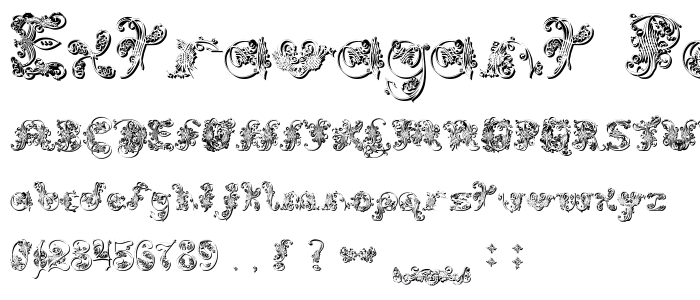 Extravagant
ABCDEFGHIJKLMNOPQRSTUV
abcdefghijklmnopqrstuvwxyz
0123456789 . , ! ? - _ : :